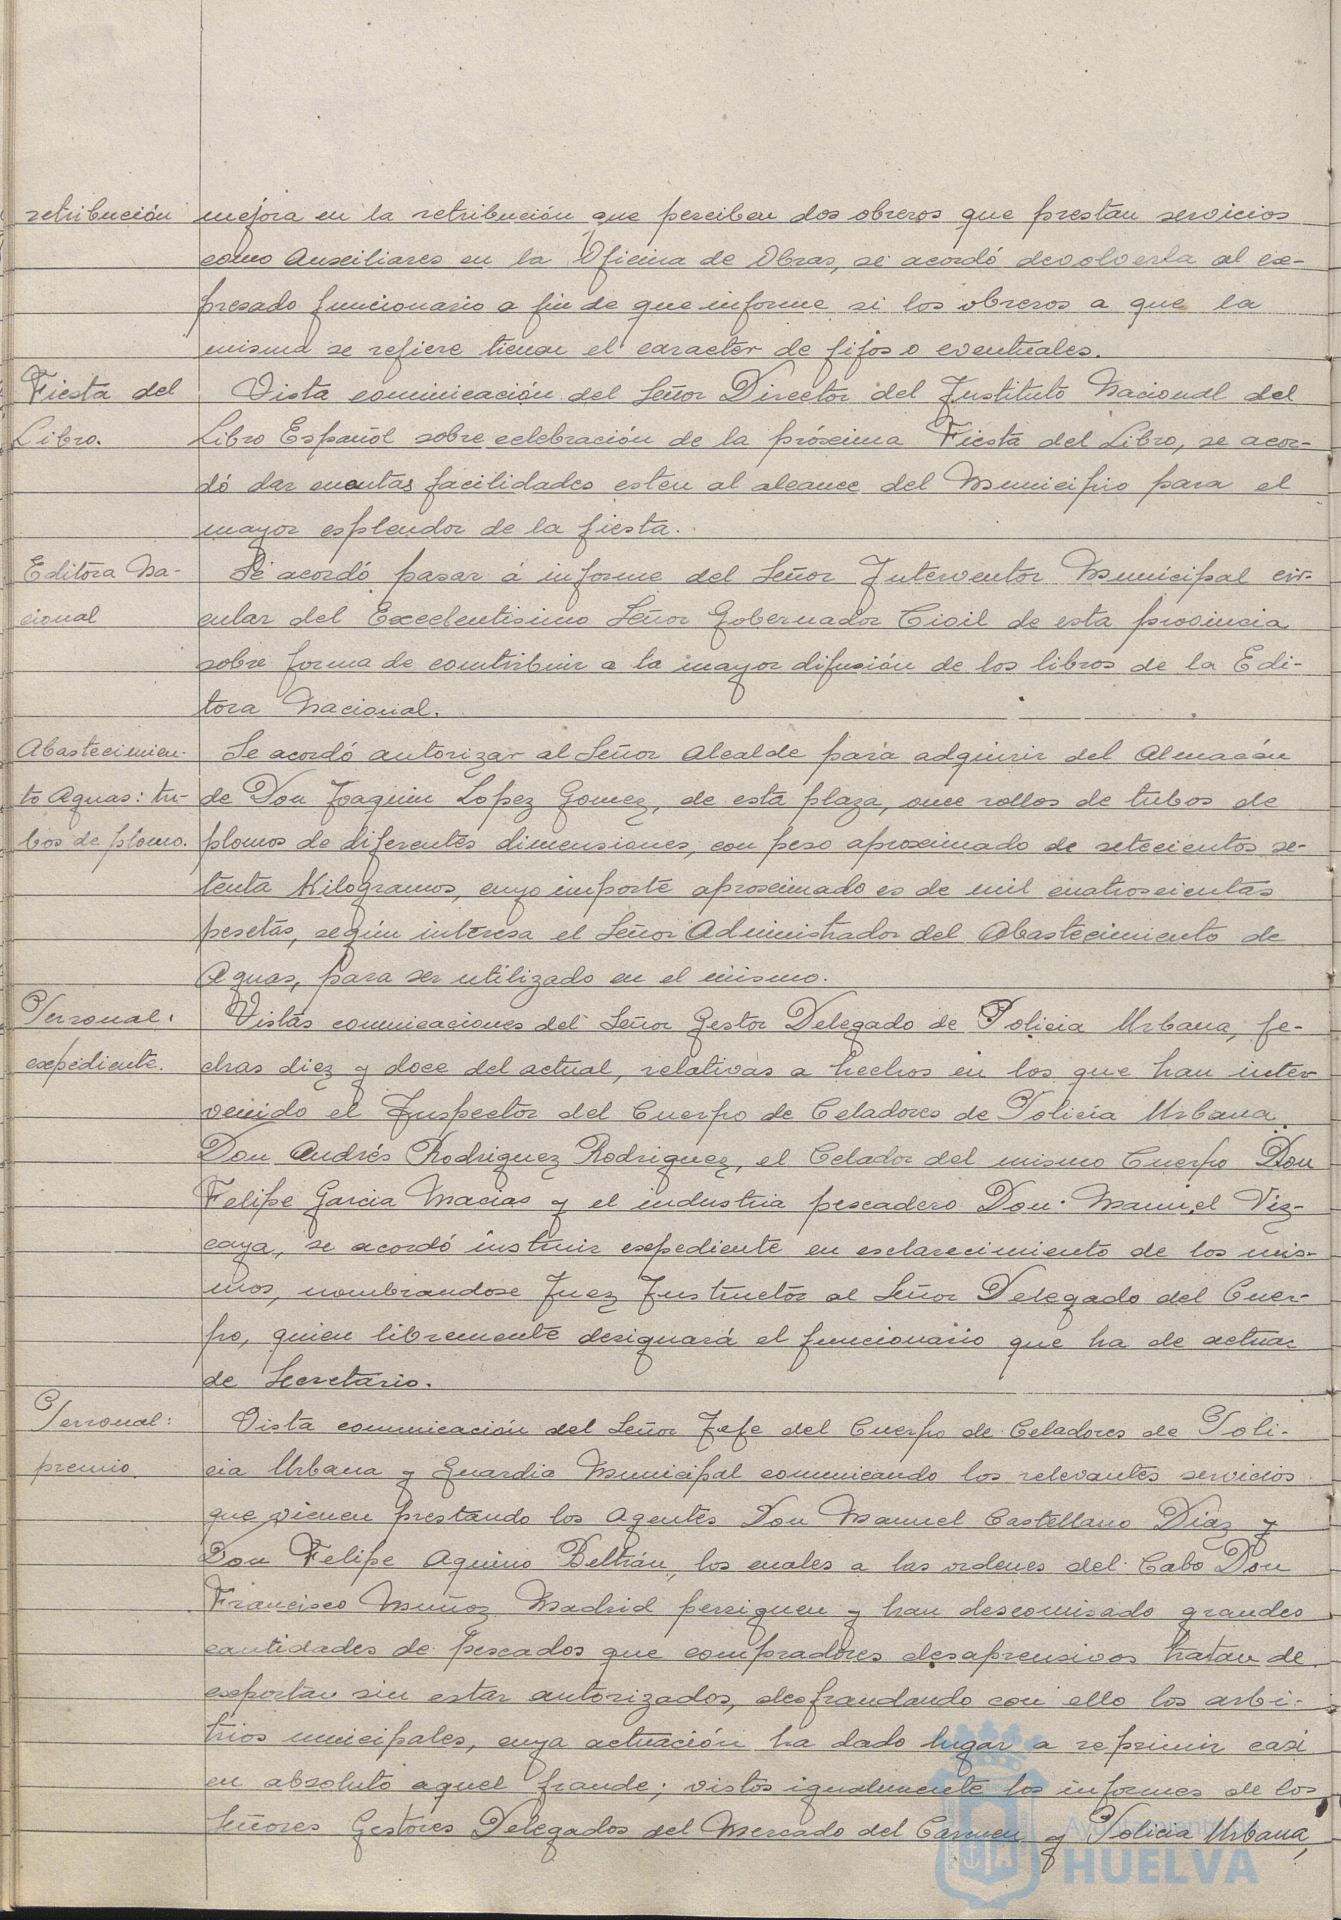 retribución mejora en la retribución que perciben dos obreros que prestan servicios
como Auxiliares en la Oficina de Obras, se acordó devolverla al ex-
presado funcionario a fin de que informe si los obreros a que la
misma se refiere tienen el caracter de fijos o eventuales.
Fiesta del Vista comunicación del Señor Director del Instituto Nacional del
Libro. Libro Español sobre celebración de la próxima Fiesta del Libro, se acor-
dó dar cuantas facilidades esten al alcance del Municipio para el
mayor esplendor de la fiesta.
Editora Na- Se acordó pasar á informe del Señor Interventor Municipal cir-
cional cular del Excelentisimo Señor Gobernador Civil de esta provincia
sobre forma de contribuir a la mayor difusión de los libros de la Edi-
tora Nacional.
Abastecimien- Se acordó autorizar al Señor Alcalde para adquirir del Almacén
to Aguas: tu- de Don Joaquin López Gomez, de esta plaza, once rollos de tubos de
bos de plomo. plomos de diferentes dimensiones, con peso aproximado de setecientos se-
tenta Kilogramos, cuyo importe aproximado es de mil cuatroscientas
pesetas, según interesa el Señor Administrador del Abastecimiento de
Aguas, para ser utilizado en el mismo.
Personal: Vistas comunicaciones del Señor Gestor Delegado de Policia Urbana, fe-
expediente. chas diez y doce del actual, relativas a hechos en los que han inter
venido el Inspector del Cuerpo de Celadores de Policía Urbana
Don Andrés Rodriguez Rodriguez, el Celador del mismo Cuerpo Don
Felipe Garcia Macias y el industria pescadero Don Manuel Viz-
caya, se acordó instruir expediente en esclarecimiento de los mis-
mos, nombrandose Juez Instructor al Señor Delegado del Cuer-
po, quien libremente designará el funcionario que ha de actuar
de Secretario.
Personal: Vista comunicación del Señor Jefe del Cuerpo de Celadores de Poli-
premio. cia Urbana y Guardia Municipal comunicando los relevantes servicios
que vienen prestando los Agentes Don Manuel Castellano Díaz y
Don Felipe Aquino Beltrán, los cuales a las ordenes del Cabo Don
Francisco Muñoz Madrid persiguen y han descomisado grandes
cantidades de pescados que compradores desaprensivos tratan de
exportar sin estar autorizados, desfraudando con ello los arbi-
trios municipales, cuya actuación ha dado lugar a reprimir casi
en absoluto aquel fraude; vistos igualmente los informes de los
Señores Gestores Delegados del Mercado del Carmen y Policia Urbana,
Ayuntamiento de
HUELVA